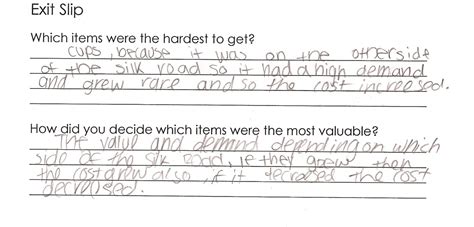 Exit Slip
Which items were the hardest to get?
cups, because it was on the otherside
of the silk road so it had a high demand
and grew rare and so the cost increesed.
How did you decide which items were the most valuable?
The valu and demand depending on which
side of the silk road, ie they grew then
the cost grew also, if it decresed the cost
decresed.